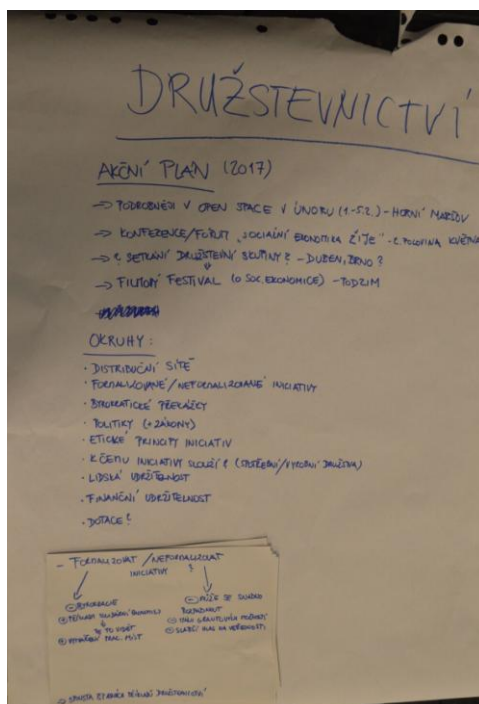 DRUŽSTEVNICTVÍ
AKČNÍ PLÁN (2017)
→ PODROBNĚJI V OPEN SPACE V ÚNORU (1.-5.2.) - HORNÍ MARŠOV
→ KONFERENCE/FÓRUM „SOCIÁLNÍ EKONOMIKA ŽIJE" - 2. POLOVINA KVĚTNA
→ ? SETKÁNÍ DRUŽSTEVNÍ SKUPINY? - DUBEN,
→ FILMOVÝ FESTIVAL (O SOC. EKONOMICE) - PODZIM
OKRUHY:
· DISTRIBUČNÍ SÍTĚ
· FORMALIZOVANÉ/NEFORMALIZOVANÉ INICIATIVY
· BYROKRATICKÉ PŘEKÁŽKY
· POLITIKY (+ZÁKONY)
· ETICKÉ PRINCIPY INICIATIV
· K ČEMU INICIATIVY SLOUŽÍ? (SPOTŘEBNÍ/VÝROBNÍ DRUŽSTVA)
· LIDSKÁ UDRŽITELNOST
· FINANČNÍ UDRŽITELNOST
· DOTACE?
- FORMALIZOVAT/NEFORMALIZOVAT
INICIATIVY ?
⊖ BYROKRACIE
⊕ PŘÍKLADY SOLIDÁRNÍ EKONOMIKY
↓
JE TO VIDĚT
⊕ VYTVÁŘENÍ PRAC. MÍST
⊖ MŮŽE SE SNADNO
ROZPADNOUT
⊖ MÁLO GRANTOVÝCH MOŽNOSTÍ
⊖ SLABŠÍ HLAS NA VEŘEJNOSTI
DRUŽSTEVNICTVÍ